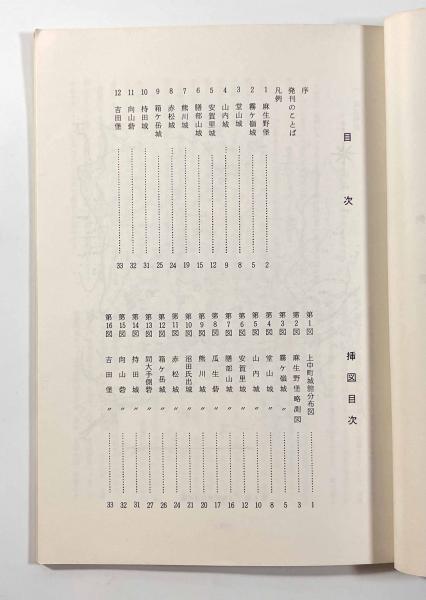 目次
序
発刊のことば
凡例
1 麻生野堡 2
2 霧ケ嶺城 5
3 堂山城 8
4 山内城 9
5 安賀里城 12
6 膳部山城 15
7 熊川城 19
8 赤松城 24
9 箱ケ岳城 25
10 持田城 31
11 向山砦 32
12 吉田堡 33
挿図目次
第1図 上中町城館分布図 1
第2図 麻生野堡略測図 3
第3図 霧ケ嶺城 〃 5
第4図 堂山城 〃 8
第5図 山内城 〃 10
第6図 安賀里城 〃 12
第7図 膳部山城 〃 16
第8図 瓜生砦 〃 17
第9図 熊川城 〃 20
第10図 沼田氏出城 〃 21
第11図 赤松城 〃 24
第12図 箱ケ岳城 〃 26
第13図 同大手側砦 〃 27
第14図 持田城 〃 31
第15図 向山砦 〃 32
第16図 吉田堡 〃 33